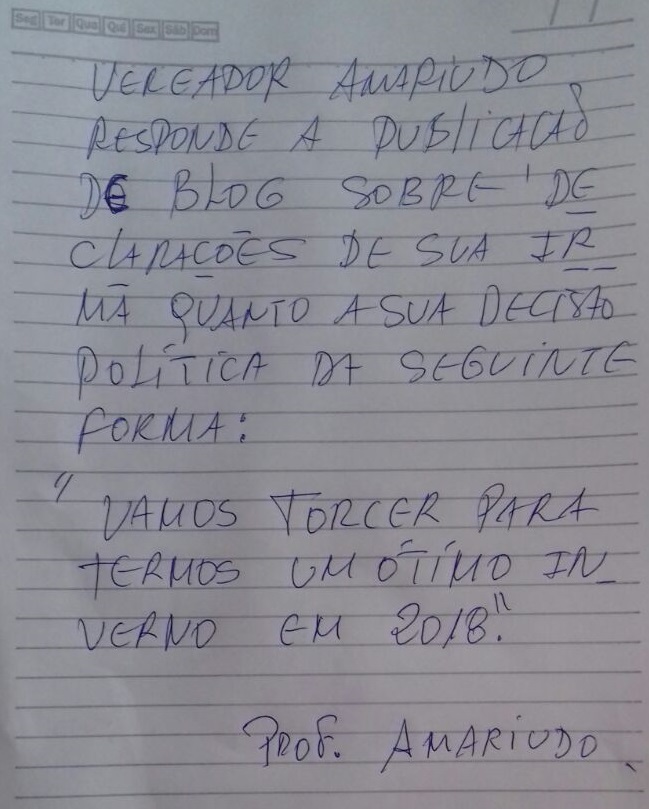 Seg Ter Qua Qui Sex Sáb Dom
VEREADOR AMARIUDO
RESPONDE A PUBLICACAÕ
DE BLOG SOBRE DE
CLARAÇÕES DE SUA IR
MÃ QUANTO A SUA DECISÃO
POLÍTICA DA SEGUINTE
FORMA:
"VAMOS TORCER PARA
TERMOS UM ÓTIMO IN
VERNO EM 2018."
PROF. AMARIUDO.